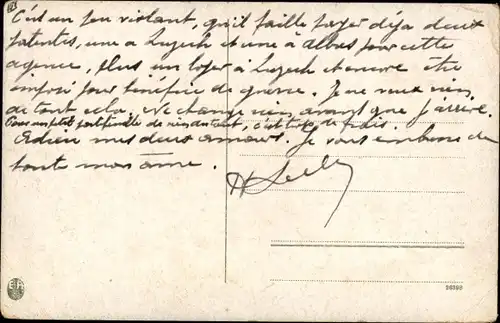 C'est un peu violent, qu'il faille payer déjà deux
patentes, une à Luzech et une à Albas pour cette
agence, plus un loyer à Luzech et encore être
imposé pour bénéfice de guerre. Je ne veux rien
de tout cela. Ne change rien avant que j'arrive.
Pour un petit portefeuille de rien du tout, c'est trop de frais.
Adieu mes deux amours. Je vous embrasse de
toute mon âme.
36896